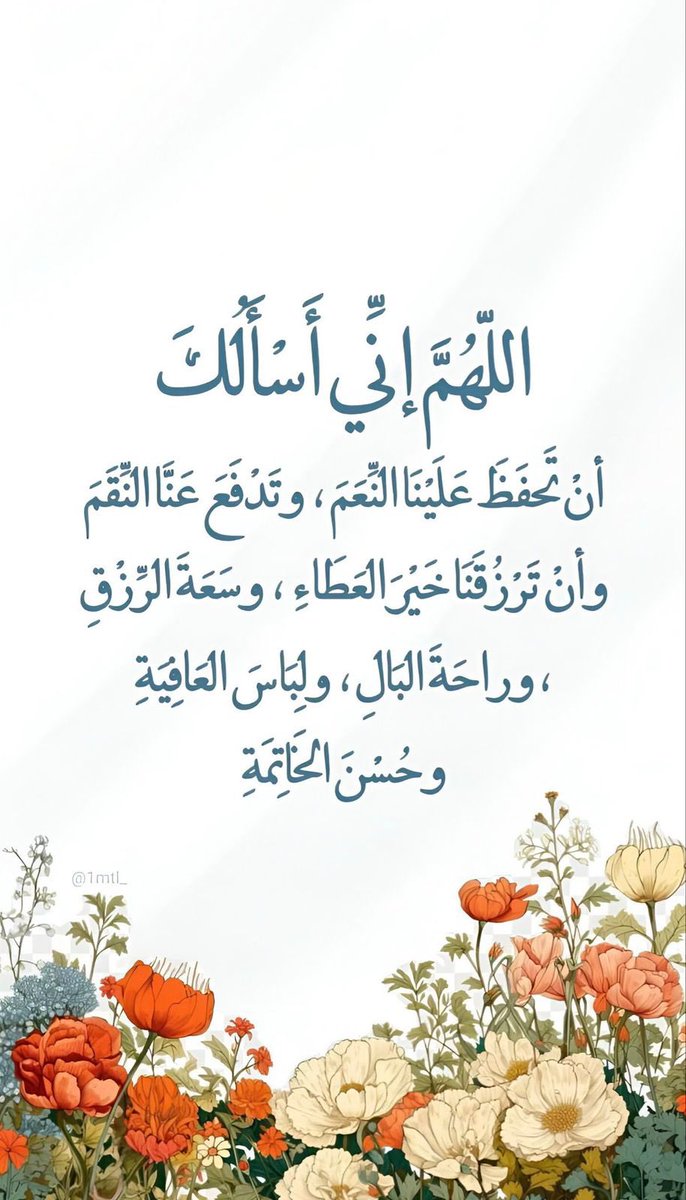 اللّٰهُمَّ إِنِّي أَسْأَلُكَ
أنْ تَحفَظَ عَلَيْنَا النِّعَمَ ، وتَدْفَعَ عَنَّا النِّقَمَ
وأنْ تَرْزُقَنَا خَيْرَ العَطَاءِ ، وسَعَةَ الرِّزْقِ
، وراحَةَ البَالِ ، ولِبَاسَ العَافِيَةِ
وحُسْنَ الخَاتِمَةِ
@1mtl_